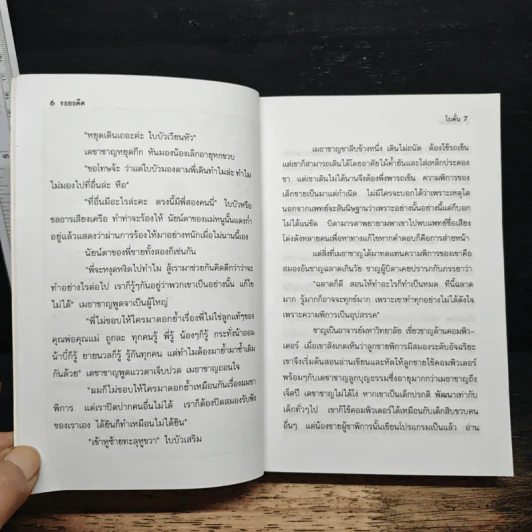 6 รอยอดีต
"หยุดเดินเถอะค่ะ ใบบัวเวียนหัว"
เดชาชาญหยุดกึก หันมองน้องเล็กอายุหกขวบ
"ขอโทษจ้ะ ว่าแต่ใบบัวมองตามพี่เดินทำไมล่ะ ทำไม
ไม่มองไปที่อื่นล่ะ หือ"
"ที่อื่นมีอะไรล่ะคะ ตรงนี้มีพี่สองคนนี่" ใบบัวหรือ
ชลธารเสียงเครือ ทำท่าจะร้องไห้ นัยน์ตาของแม่หนูนั้นแดงก่ำ
อยู่แล้วแสดงว่าผ่านการร้องไห้มาอย่างหนักเมื่อไม่นานนี้เอง
นัยน์ตาของพี่ชายทั้งสองก็เช่นกัน
"พี่จะหงุดหงิดไปทำไม สู้เรามาช่วยกันคิดดีกว่าว่าจะ
ทำอย่างไรต่อไป เราก็รู้ๆกันอยู่ว่าพวกเขาเป็นอย่างนั้น แก้ไข
ไม่ได้" เมธาชาญพูดจาเป็นผู้ใหญ่
"พี่ไม่ชอบให้ใครมาตอกย้ำเรื่องพี่ไม่ใช่ลูกแท้ๆของ
คุณพ่อคุณแม่ ถูกละ ทุกคนรู้ พี่รู้ น้องๆก็รู้ กระทั่งน้าออม
น้าบี๋ก็รู้ ยายนวลก็รู้ รู้กันทุกคน แต่ทำไมต้องมาย้ำมาซ้ำเติม
กันด้วย" เดชาชาญพูดแววตาเจ็บปวด เมธาชาญถอนใจ
"ผมก็ไม่ชอบให้ใครมาตอกย้ำเหมือนกันเรื่องผมขา
พิการ แต่เราปิดปากคนอื่นไม่ได้ เราก็ต้องปิดสมองรับฟัง
ของเราเอง ได้ยินก็ทำเหมือนไม่ได้ยิน"
"เข้าหูซ้ายทะลุหูขวา" ใบบัวเสริม
ใบคั่น 7
เมธาชาญขาลีบข้างหนึ่ง เดินไม่ถนัด ต้องใช้รถเข็น
แต่เขาก็สามารถเดินได้โดยอาศัยไม้ค้ำยันและใส่เหล็กประคอง
ขา แต่เขาเดินไม่ได้นานจึงต้องพึ่งพารถเข็น ความพิการของ
เด็กชายเป็นมาแต่กำเนิด ไม่มีใครจะบอกได้ว่าเพราะเหตุใด
นอกจากแพทย์จะสันนิษฐานว่าเพราะอย่างนั้นอย่างนี้แต่ก็บอก
ไม่ได้แน่ชัด บิดามารดาพยายามพาเขาไปพบแพทย์ชื่อเสียง
โด่งดังหลายคนเพื่อหาทางแก้ไขหากคำตอบก็คือการส่ายหน้า
แต่สิ่งที่เมธาชาญได้มาทดแทนความพิการของเขาคือ
สมองอันชาญฉลาดเกินวัย ชาญผู้บิดาเคยปรารภกับภรรยาว่า
"ฉลาดก็ดี สอนให้ทำอะไรก็ทำเป็นหมด ที่นี้ฉลาด
มาก รู้มากก็อาจจะทุกข์มาก เพราะเขาทำทุกอย่างไม่ได้ดังใจ
เพราะความพิการเป็นอุปสรรค"
ชาญเป็นอาจารย์มหาวิทยาลัย เชี่ยวชาญด้านคอมพิว-
เตอร์ เมื่อเขาสังเกตเห็นว่าลูกชายผู้พิการมีสมองระดับอัจฉริยะ
เขาจึงเริ่มต้นสอนอ่านเขียนและหัดให้ลูกชายใช้คอมพิวเตอร์
พร้อมๆกับเดชาชาญลูกบุญธรรมซึ่งอายุมากกว่าเมธาชาญถึง
เจ็ดปี เดชาชาญไม่ได้โง่ หากเขาเป็นเด็กปรกติ พัฒนาเท่ากับ
เด็กทั่วๆไป เขาก็ใช้คอมพิวเตอร์ได้เหมือนกับเด็กสิบขวบคน
อื่นๆ แต่น้องชายผู้ขาพิการนั้นเขียนโปรแกรมเป็นแล้ว อ่าน